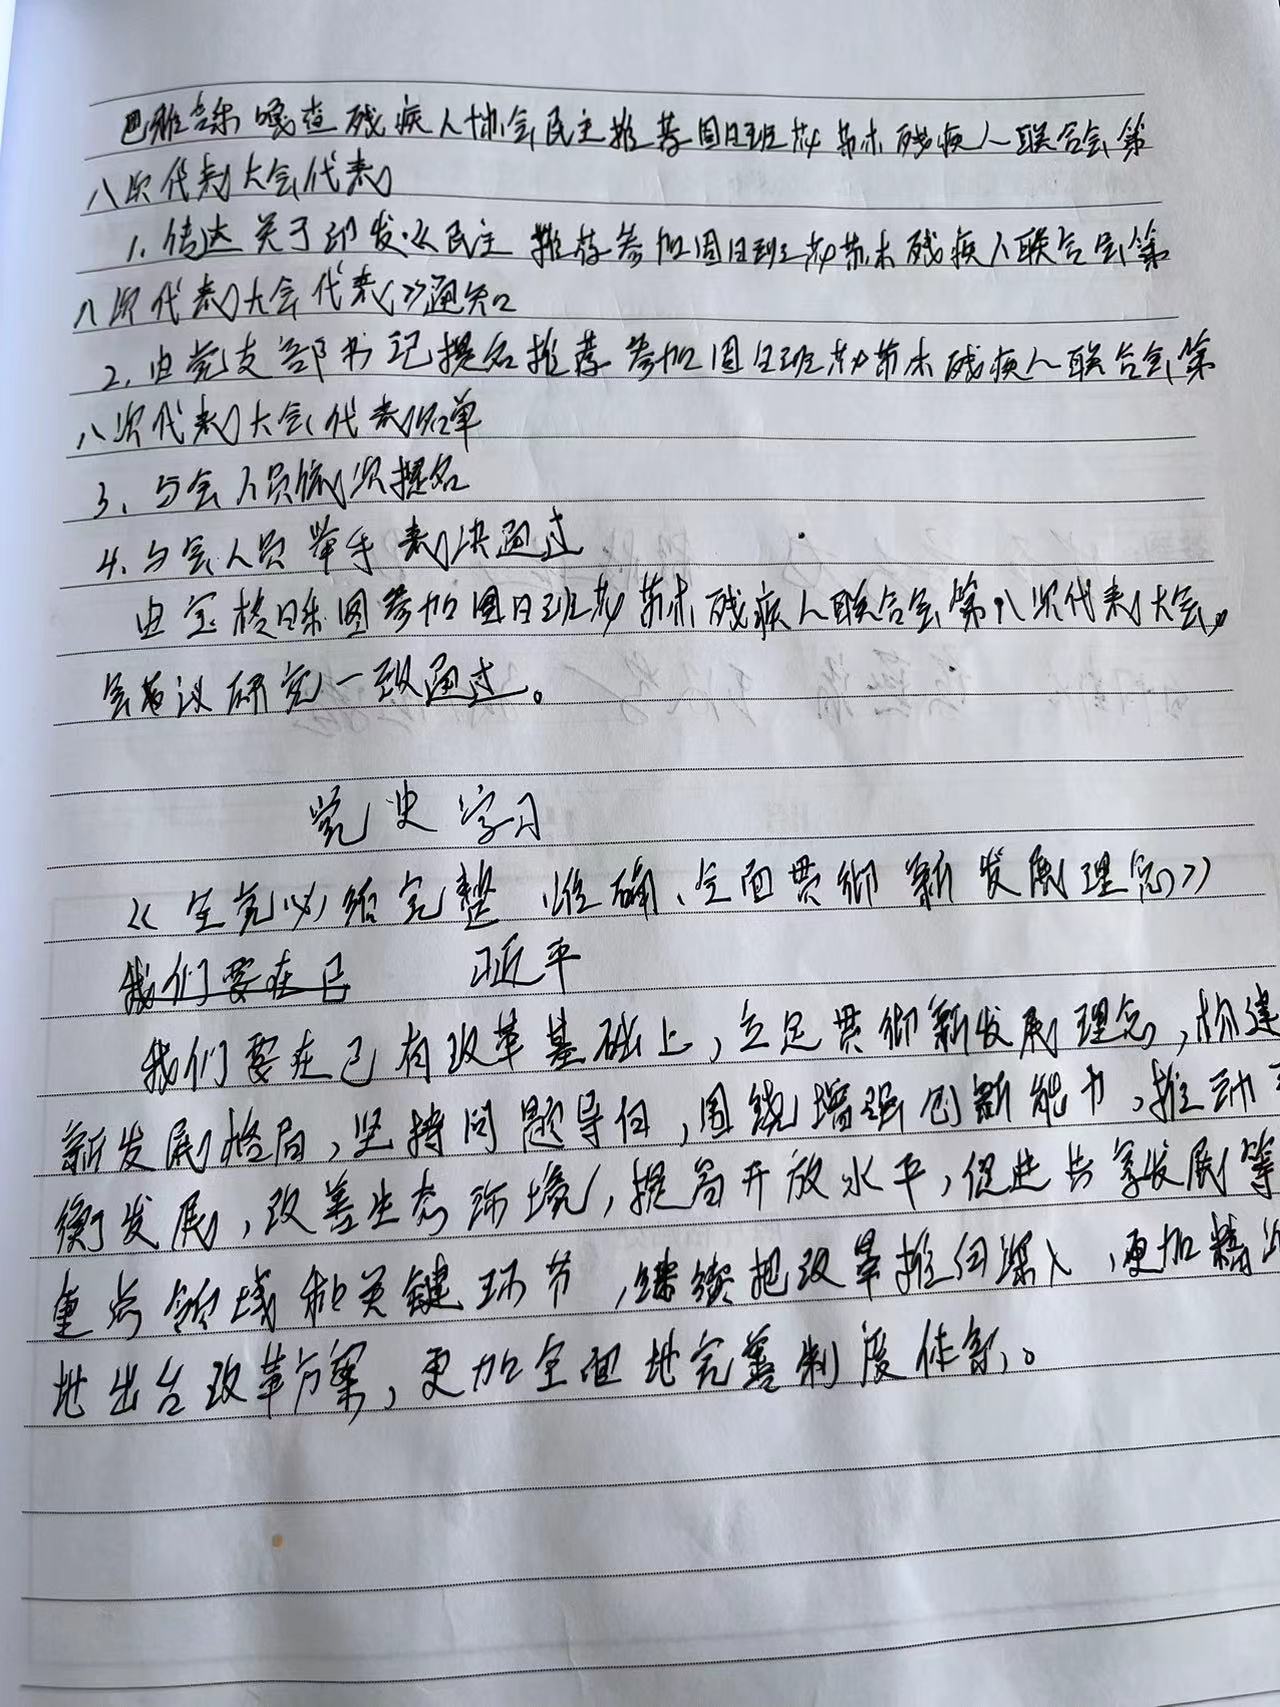 巴雅尔 嘎查 残疾人协会民主推荐固日班花苏木残疾人联合会第
八次代表大会代表
1. 传达关于印发《民主 推荐参加固日班花苏木残疾人联合会第
八次代表大会代表》通知
2. 由党支部书记提名推荐 参加固日班花苏木残疾人联合会第
八次代表大会代表名单
3、与会人员依次提名
4. 与会人员举手表决通过
由宝格日乐图参加固日班花苏木残疾人联合会第八次代表大会。
会议研究一致通过。
党史学习
《全党必须完整、准确、全面贯彻新发展理念》
我们要在已 习近平
我们要在已有改革基础上,立足贯彻新发展理念,构建
新发展格局,坚持问题导向,围绕增强创新能力、推动平
衡发展,改善生态环境,提高开放水平,促进共享发展等
重点领域和关键环节,继续把改革推向深入,更加精准
地出台改革方案,更加全面地完善制度体系。